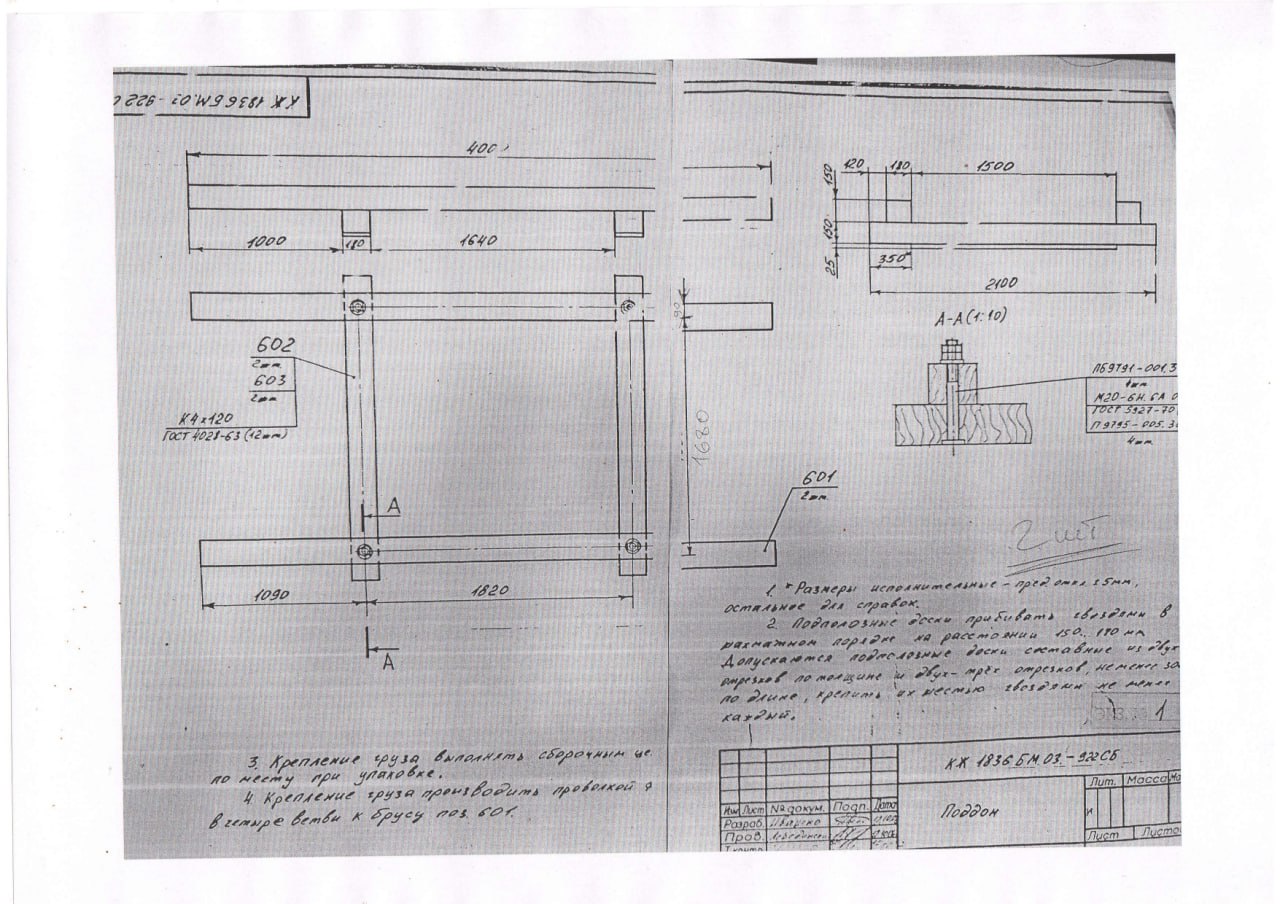 КЖ 1836 БМ.03-922 С
400
1000
180
1640
120
180
1500
150
150
25
350
2100
А-А (1:10)
90
602
2шт.
603
2шт
К4х120
ГОСТ 4028-63 (12шт)
П69791-001.3
4шт
М20-6Н.6А
ГОСТ 5927-70
П9795-005.3
4шт
1680
601
2шт.
А
1090
1820
А
2 шт
1. *Размеры исполнительные - пред. откл. ±5мм,
остальное для справок.
2. Подполозные доски прибивать гвоздями в
шахматном порядке на расстоянии 150..180 мм
Допускаются подполозные доски составные из двух
отрезков по толщине и двух-трёх отрезков, не менее
по длине, крепить их шестью гвоздями не менее
каждый.
3. Крепление груза выполнять сборочным це
по месту при упаковке.
4. Крепление груза производить проволкой
в четыре ветви к брусу поз. 601.
1
КЖ 1836.БМ.03.-922СБ
Поддон
Лит.
Масса
И
Лист
Изм
Лист
№ докум.
Подп.
Дата
Разраб.
Пров.
Т.контр.